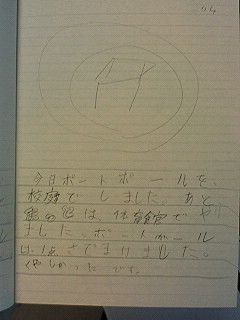 今日ポートボールを、
校庭でしました。あと
は、体育館でやり
ました。ポートボール
は、1点さでまけました。
くやしかったです。